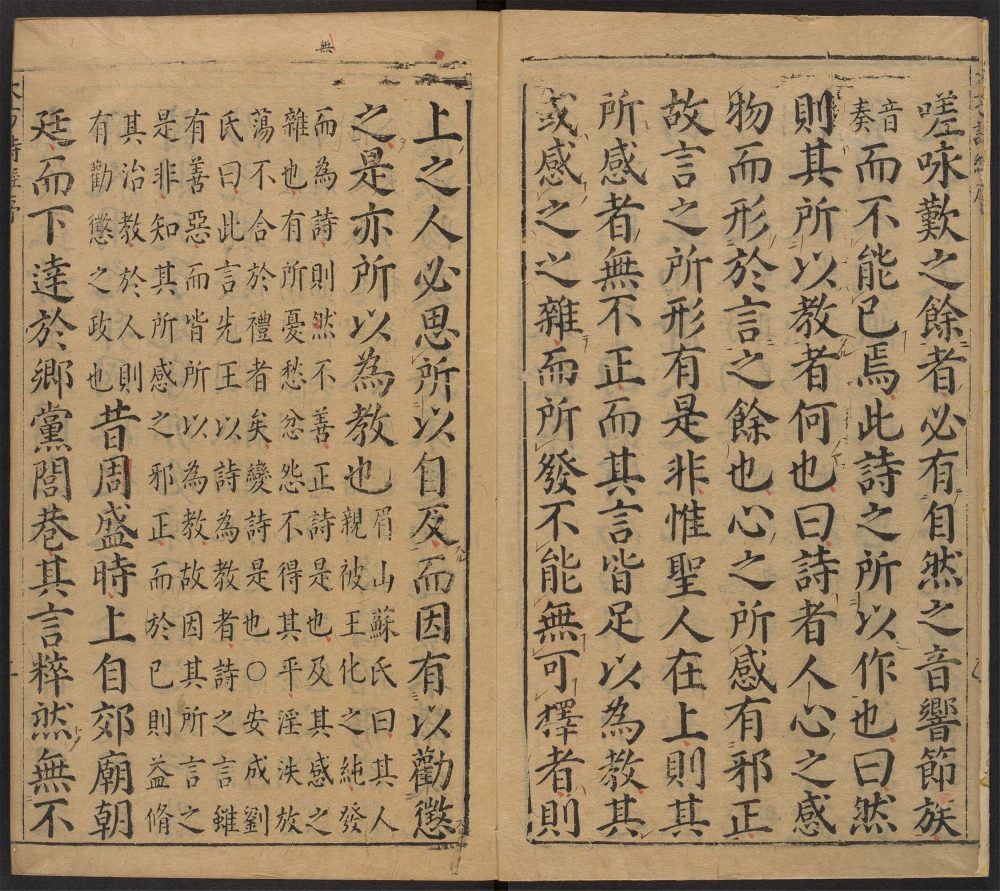 嗟咏歎之餘者必有自然之音響節族
音
奏
而不能已焉此詩之所以作也曰然
則其所以教者何也曰詩者人心之感
物而形於言之餘也心之所感有邪正
故言之所形有是非惟聖人在上則其
所感者無不正而其言皆足以為教其
或感之之雜而所發不能無可擇者則
無
上之人必思所以自反而因有以勸懲
之是亦所以為教也
眉山蘇氏曰其人
親被王化之純發
而為詩則然不善正詩是也及其感之
雜也有所憂愁忿怨不得其平淫泆放
蕩不合於禮者矣變詩是也○安成劉
氏曰此言先王以詩為教者詩之言雖
有善惡而皆所以為教故因其所言之
是非知其所感之邪正而於己則益脩
其治教於人則
有勸懲之政也
昔周盛時上自郊廟朝
廷而下達於鄉黨閭巷其言粹然無不